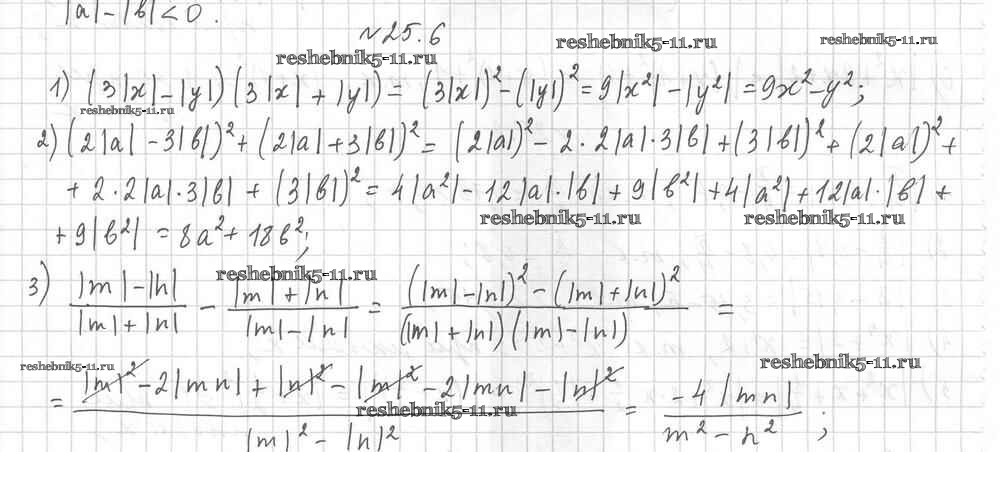 |a| - |b| < 0.
№25.6
reshebnik5-11.ru
reshebnik5-11.ru
reshebnik5-11.ru
1) (3|x| - |y|)(3|x| + |y|) = (3|x|)² - (|y|)² = 9|x²| - |y²| = 9x² - y²;
reshebnik5-11.ru
2) (2|a| - 3|b|)² + (2|a| + 3|b|)² = (2|a|)² - 2·2|a|·3|b| + (3|b|)² + (2|a|)² +
+ 2·2|a|·3|b| + (3|b|)² = 4|a²| - 12|a|·|b| + 9|b²| + 4|a²| + 12|a|·|b| +
reshebnik5-11.ru
reshebnik5-11.ru
+ 9|b²| = 8a² + 18b²;
reshebnik5-11.ru
3) (|m| - |n|)/(|m| + |n|) - (|m| + |n|)/(|m| - |n|) = ((|m| - |n|)² - (|m| + |n|)²)/((|m| + |n|)(|m| - |n|)) =
reshebnik5-11.ru
reshebnik5-11.ru
= (|m|² - 2|mn| + |n|² - |m|² - 2|mn| - |n|²)/(|m|² - |n|²) = (-4|mn|)/(m² - n²);
reshebnik5-11.ru